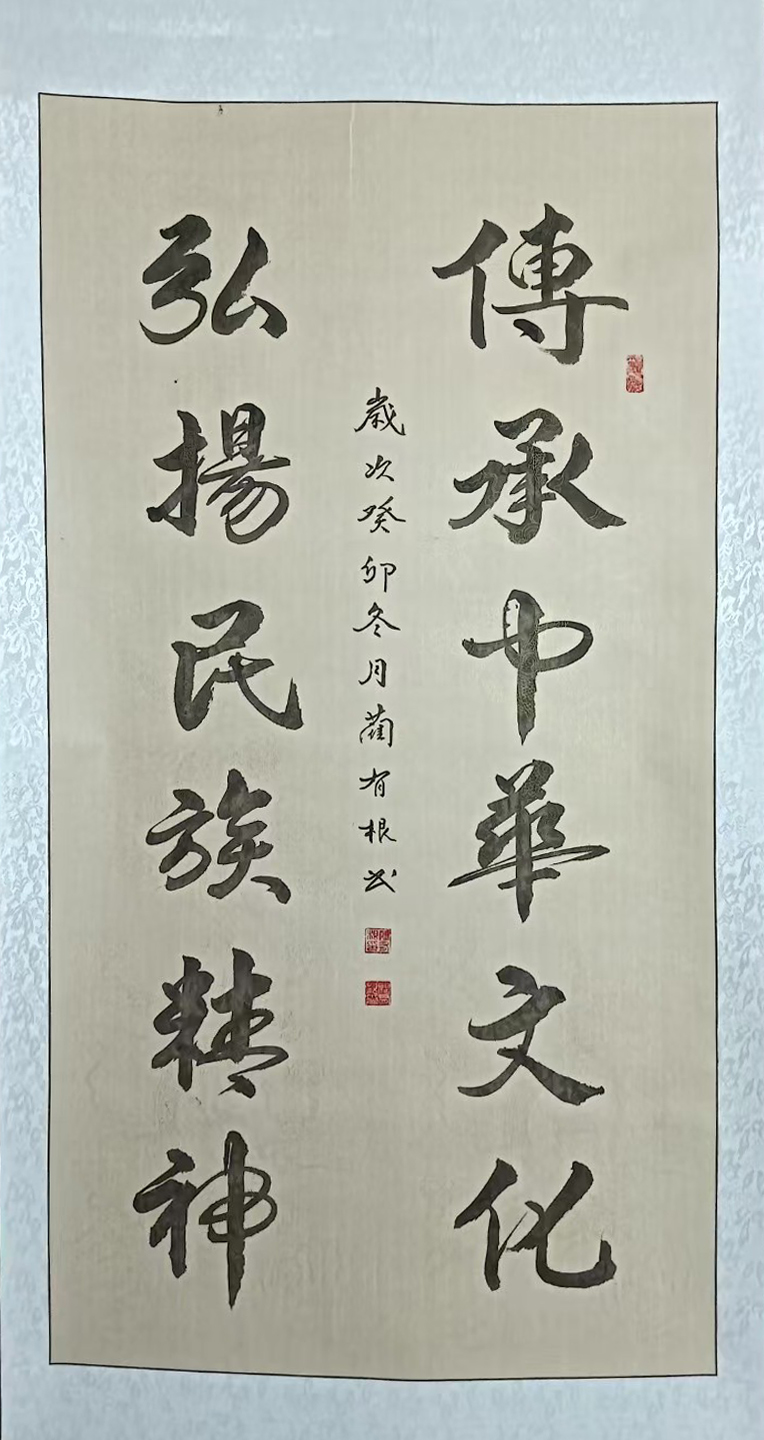 傳承中華文化
弘揚民族精神
歲次癸卯冬月藺有根書